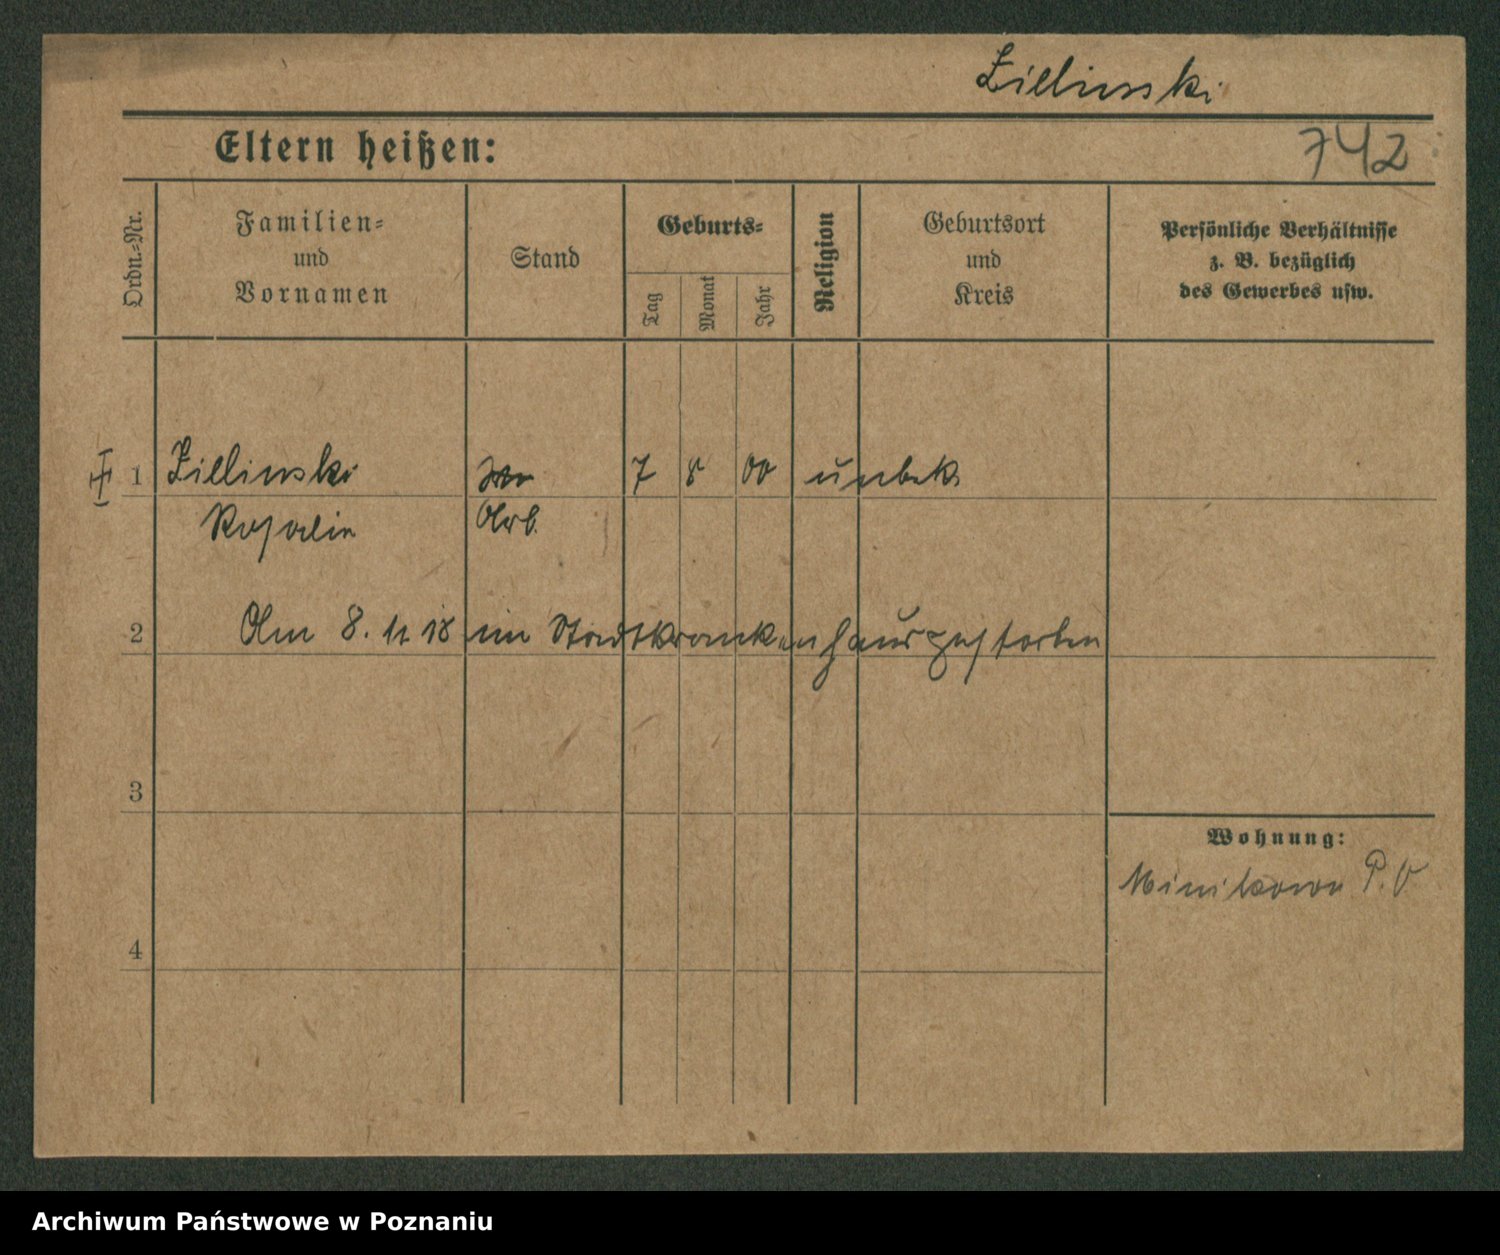 Zielinski
Eltern heißen:
742
Ordn.=Nr.
Familien=
und
Vornamen
Stand
Geburts=
Tag
Monat
Jahr
Religion
Geburtsort
und
Kreis
Persönliche Verhältnisse
z. B. bezüglich
des Gewerbes usw.
1 Zielinski 7 8 00 unbek.
Rosalie Arb.
2 Am 8. 11 18 im Stadtkrankenhaus gestorben
3
Wohnung:
Minikowo P. O
4
Archiwum Państwowe w Poznaniu